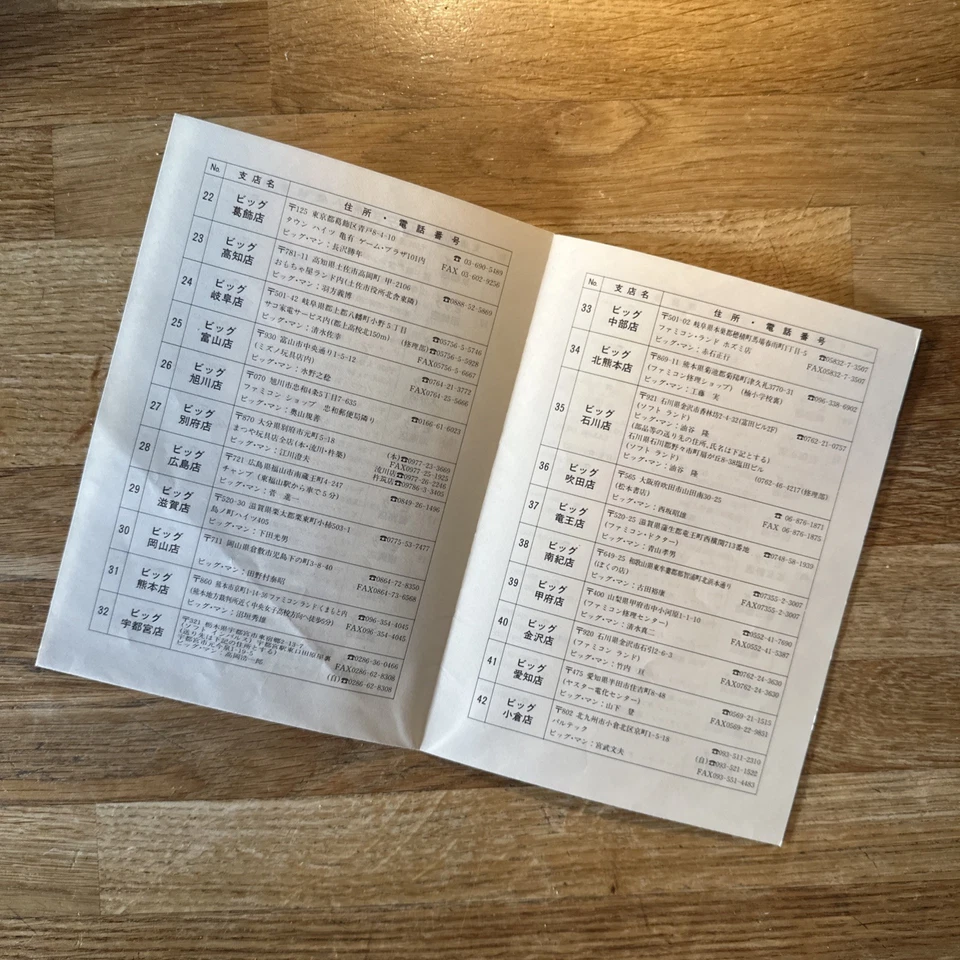 No. 支店名 住所・電話番号
22 ビッグ葛飾店 〒125 東京都葛飾区青戸8-4-10
タウン ハイツ 亀有 ゲーム・プラザ101内 ☎ 03-690-5489
ビッグ・マン：長沢勝年 FAX 03-602-9250
23 ビッグ高知店 〒781-11 高知県土佐市高岡町 甲-2106
おもちゃ屋ランド内(土佐市役所北舎東隣)
ビッグ・マン：羽方義博 ☎0888-52-5869
24 ビッグ岐阜店 〒501-42 岐阜県郡上郡八幡町小野5丁目
サコ家電サービス内(郡上高校北150m) ☎05756-5-5746
ビッグ・マン：清水佐幸 (修理部)☎05756-5-5928
FAX05756-5-6667
25 ビッグ富山店 〒930 富山市中央通り1-5-12
(ミズノ玩具店内) ☎0764-21-3777
ビッグ・マン：水野之稔 FAX0764-25-5666
26 ビッグ旭川店 〒070 旭川市忠和4条5丁目7-635
ファミコン ショップ 忠和郵便局隣り
ビッグ・マン：奥山規善 ☎0166-61-6023
27 ビッグ別府店 〒870 大分県別府市元町5-18
まつや玩具店全店(本・流川・杵築) (本)☎0977-23-3669
FAX0977-25-1925
ビッグ・マン：江川澄夫 流川店☎0977-26-2246
杵筑店☎09786-3-3405
28 ビッグ広島店 〒721 広島県福山市南蔵王町4-247
チャンプ (東福山駅から車で5分)
ビッグ・マン：菅 進一 ☎0849-26-1496
29 ビッグ滋賀店 〒520-30 滋賀県栗太郡栗東町小柿503-1
島ノ町ハイツ405
ビッグ・マン：下田光男 ☎0775-53-7477
30 ビッグ岡山店 〒711 岡山県倉敷市児島下の町3-8-40
☎0864-72-8350
ビッグ・マン：田野村泰昭 FAX0864-73-6568
31 ビッグ熊本店 〒860 熊本市京町1-14-36 ファミコンランドくまもと内
(熊本地方裁判所近く中央女子高校方向へ徒歩6分) ☎096-354-4045
ビッグ・マン：沼垣秀雄 FAX096-354-4045
32 ビッグ宇都宮店 〒321 栃木県宇都宮市東宿郷2-13-7
(ソフト インパルス) 宇都宮駅東口田原屋裏
(送り先は下記の住所とする) ☎0286-36-0466
宇都宮市元今泉1-19-5 FAX0286-62-8308
ビッグ・マン：高岡浩一郎 (自)☎0286-62-8308
No. 支店名 住所・電話番号
33 ビッグ中部店 〒501-02 岐阜県本巣郡穂積町馬場春雨町1丁目-5
ファミコン・ランド ホズミ店 ☎05832-7-3507
ビッグ・マン：赤石正行 FAX05832-7-3507
34 ビッグ北熊本店 〒869-11 熊本県菊池郡菊陽町津久礼3770-31
(ファミコン修理ショップ) (柚小学校裏)
ビッグ・マン：工藤 実 ☎096-338-6902
35 ビッグ石川店 〒921 石川県金沢市香林坊2-4-32(富田ビル2F)
(ソフト ランド)
ビッグ・マン：油谷 隆 ☎0762-21-0757
(部品等の送り先の住所、氏名は下記とする)
石川県石川郡野々市町扇が丘8-38塩田ビル
(ソフト ランド)
ビッグ・マン：油谷 隆 (0762-46-4217(修理部)
36 ビッグ吹田店 〒565 大阪府吹田市山田南30-25
(松本書店) ☎ 06-876-1871
ビッグ・マン：西坂昭雄 FAX 06-876-1875
37 ビッグ竜王店 〒520-25 滋賀県蒲生郡竜王町西横関713番地
(ファミコン・ドクター)
ビッグ・マン：青山孝男 ☎0748-58-1939
38 ビッグ南紀店 〒649-25 和歌山県東牟婁郡那智浦町北浜本通り
(ぼくの店) ☎07355-2-3007
ビッグ・マン：古田裕康 FAX07355-2-3007
39 ビッグ甲府店 〒400 山梨県甲府市中小河原1-1-10
(ファミコン修理センター) ☎0552-41-7690
ビッグ・マン：清水真二 FAX0552-41-5387
40 ビッグ金沢店 〒920 石川県金沢市石引2-6-3
(ファミコン ランド) ☎0762-24-3630
ビッグ・マン：竹内 FAX0762-24-3630
41 ビッグ愛知店 〒475 愛知県半田市住吉町8-48
(ヤスター電化センター) ☎0569-21-1515
ビッグ・マン：山下 登 FAX0569-22-9851
42 ビッグ小倉店 〒802 北九州市小倉北区京町1-5-18
パルテック ☎093-511-2310
ビッグ・マン：宮武文夫 (自)☎093-521-1522
FAX093-551-4483